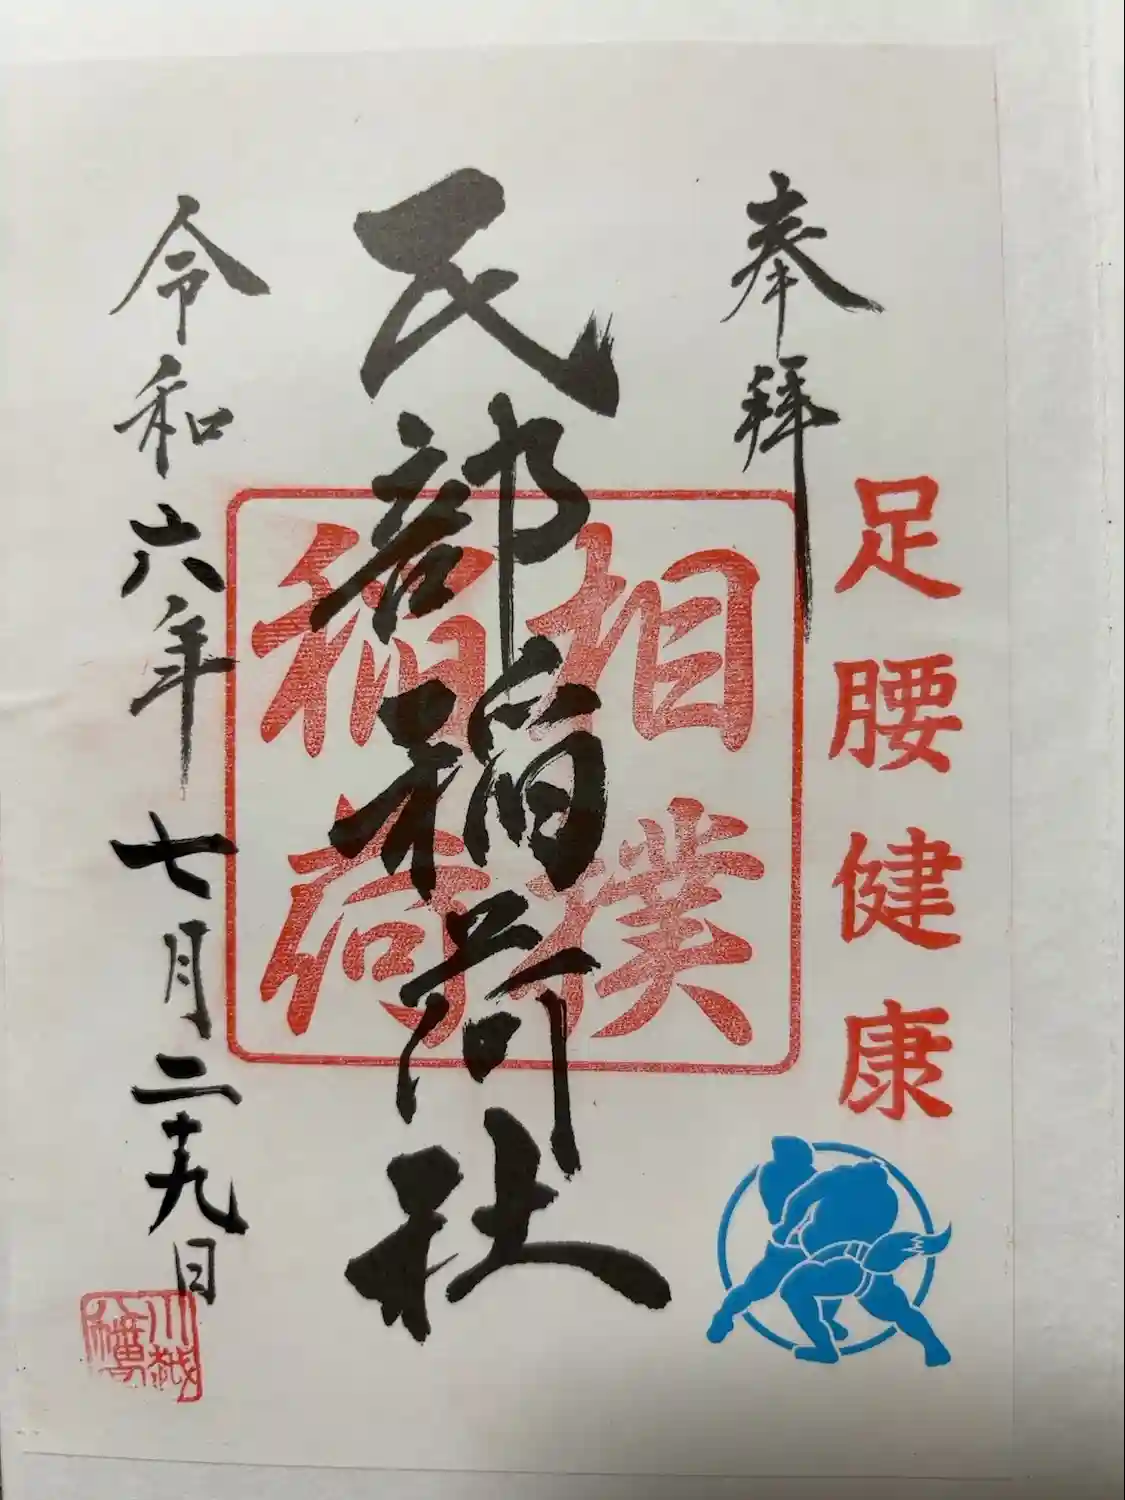 奉拝
足腰健康
民部稲荷社
相撲
稲荷
令和六年七月二十九日
川越
八幡